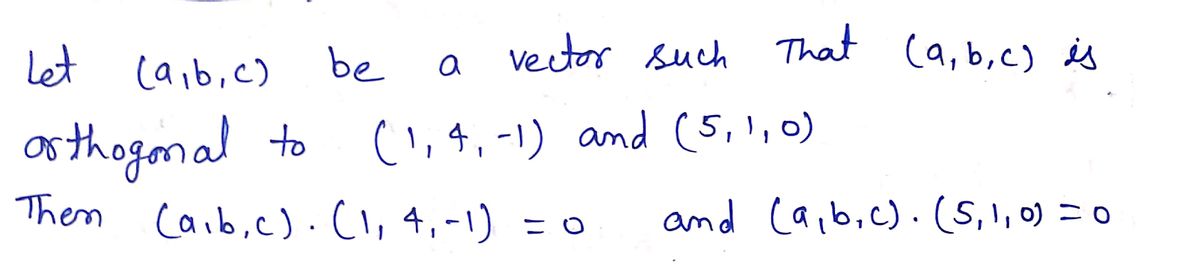 Let (a,b,c) be a vector such That (a,b,c) is
orthogonal to (1,4,-1) and (5,1,0)
Then (a,b,c).(1,4,-1) = 0 and (a,b,c).(5,1,0) = 0